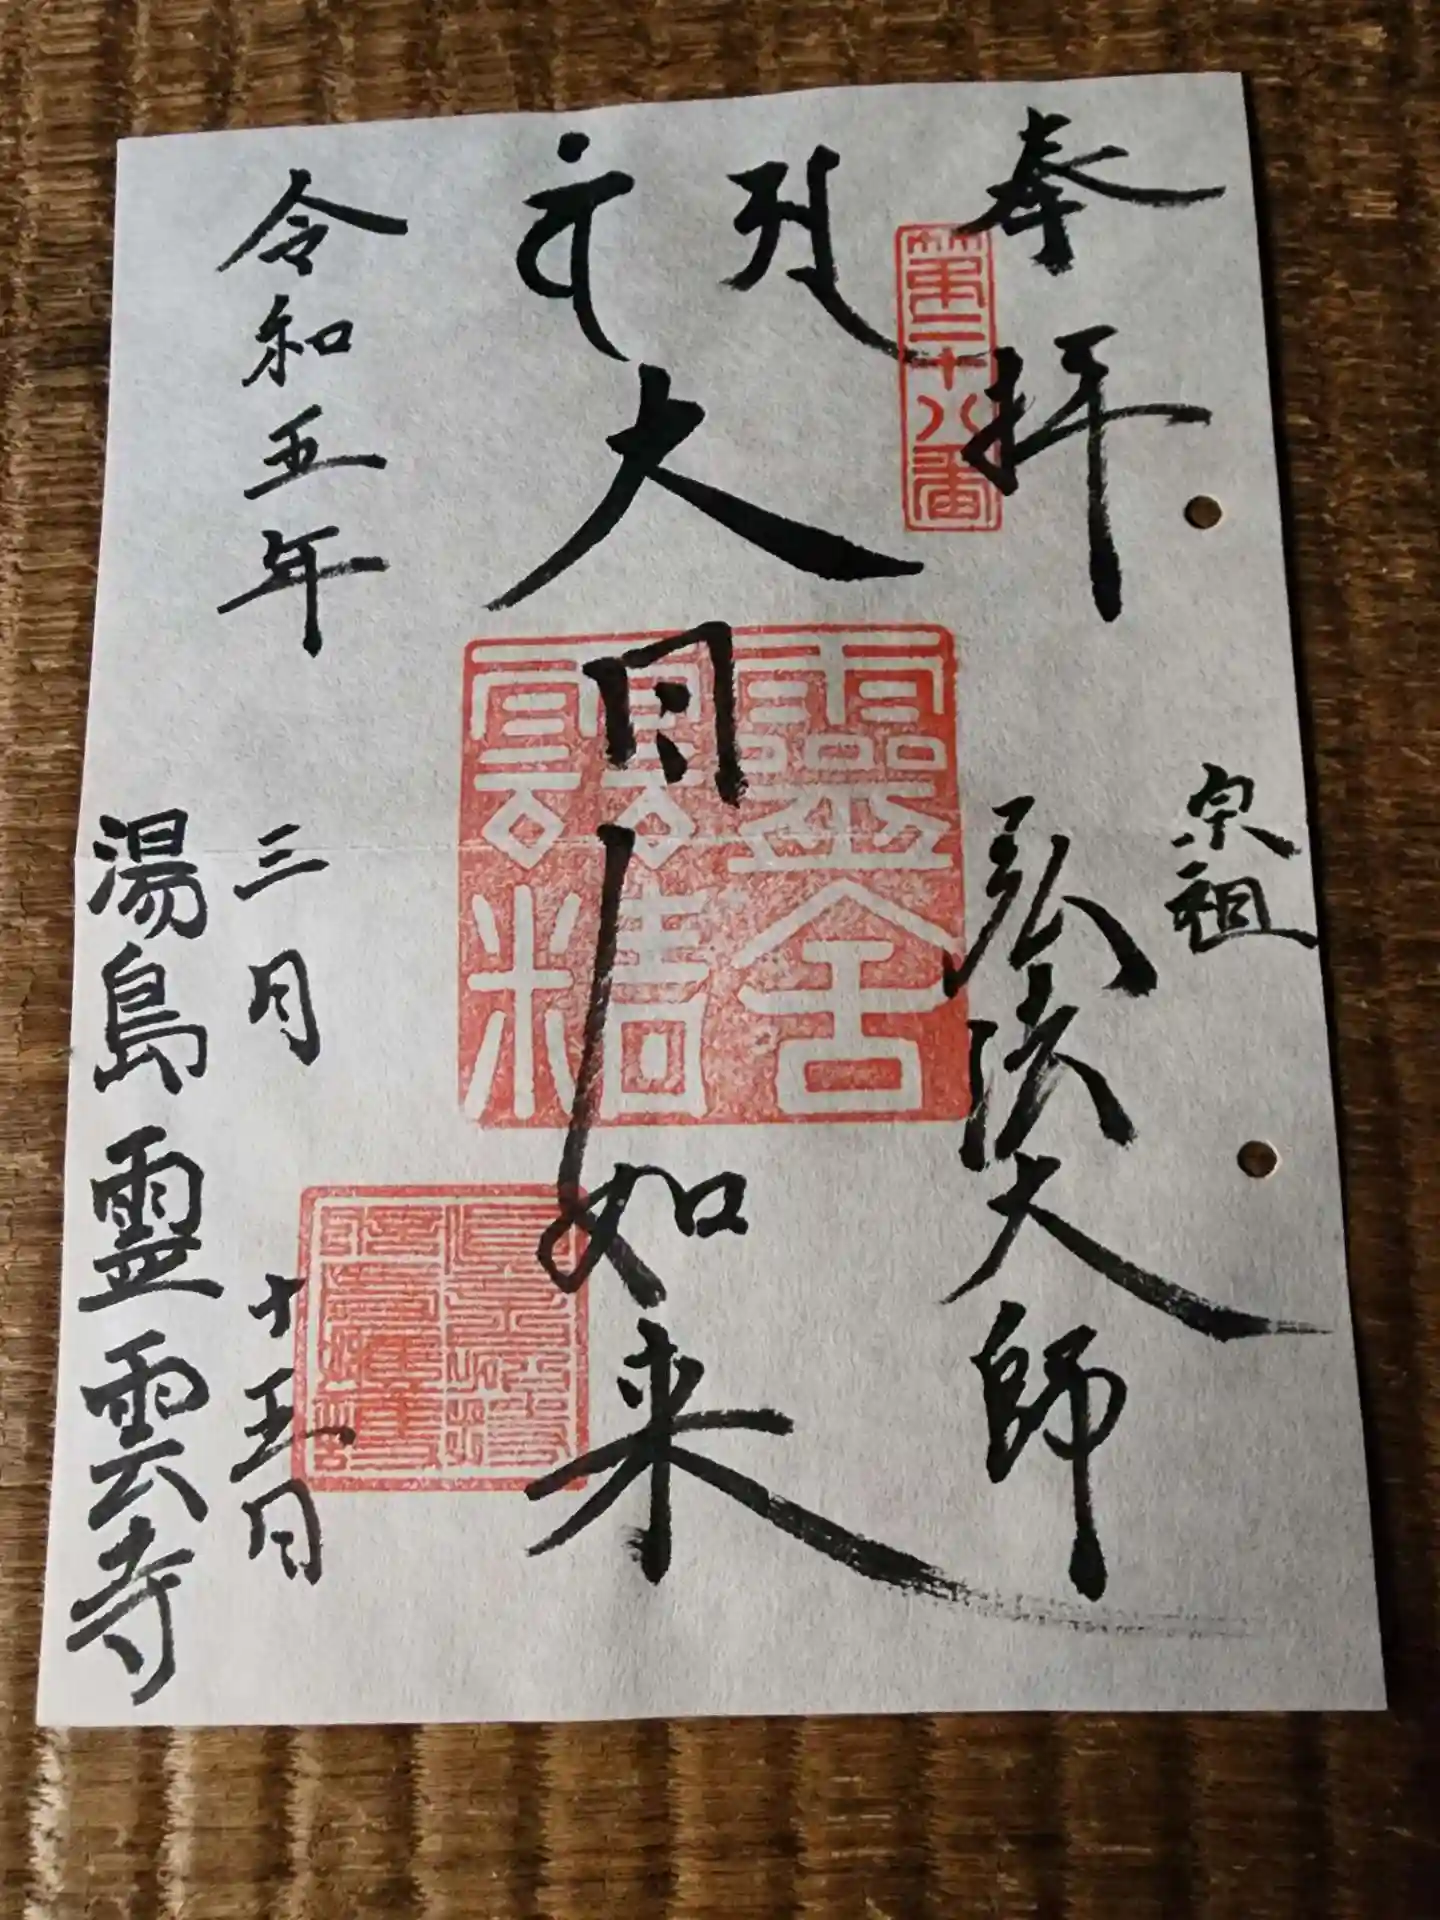 奉拝
第二十八番
宗祖
弘法大師
大日如来
靈雲
寶精舍
令和五年
三月
十五日
湯島霊雲寺